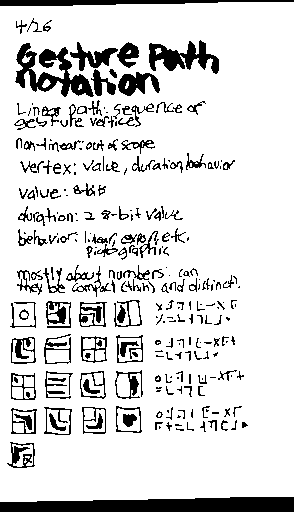 4/26
Gesture Path
Notation
Linear path: sequence of
gesture vertices
non-linear: out of scope
vertex: value, duration, behavior
value: 8-bit
duration: 2 8-bit value
behavior: linear, expon, etc.
pictographic
mostly about numbers. can
they be compact (thin) and distinct?